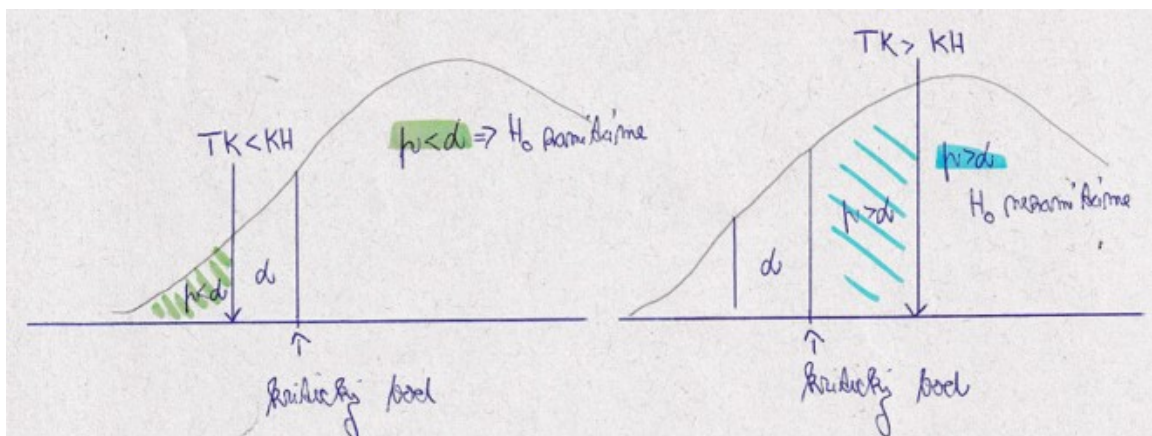 TK<KH
p<α ⇒ H₀ zamítáme
p<α
α
kritický bod
TK> KH
p>α
H₀ nezamítáme
p>α
α
kritický bod